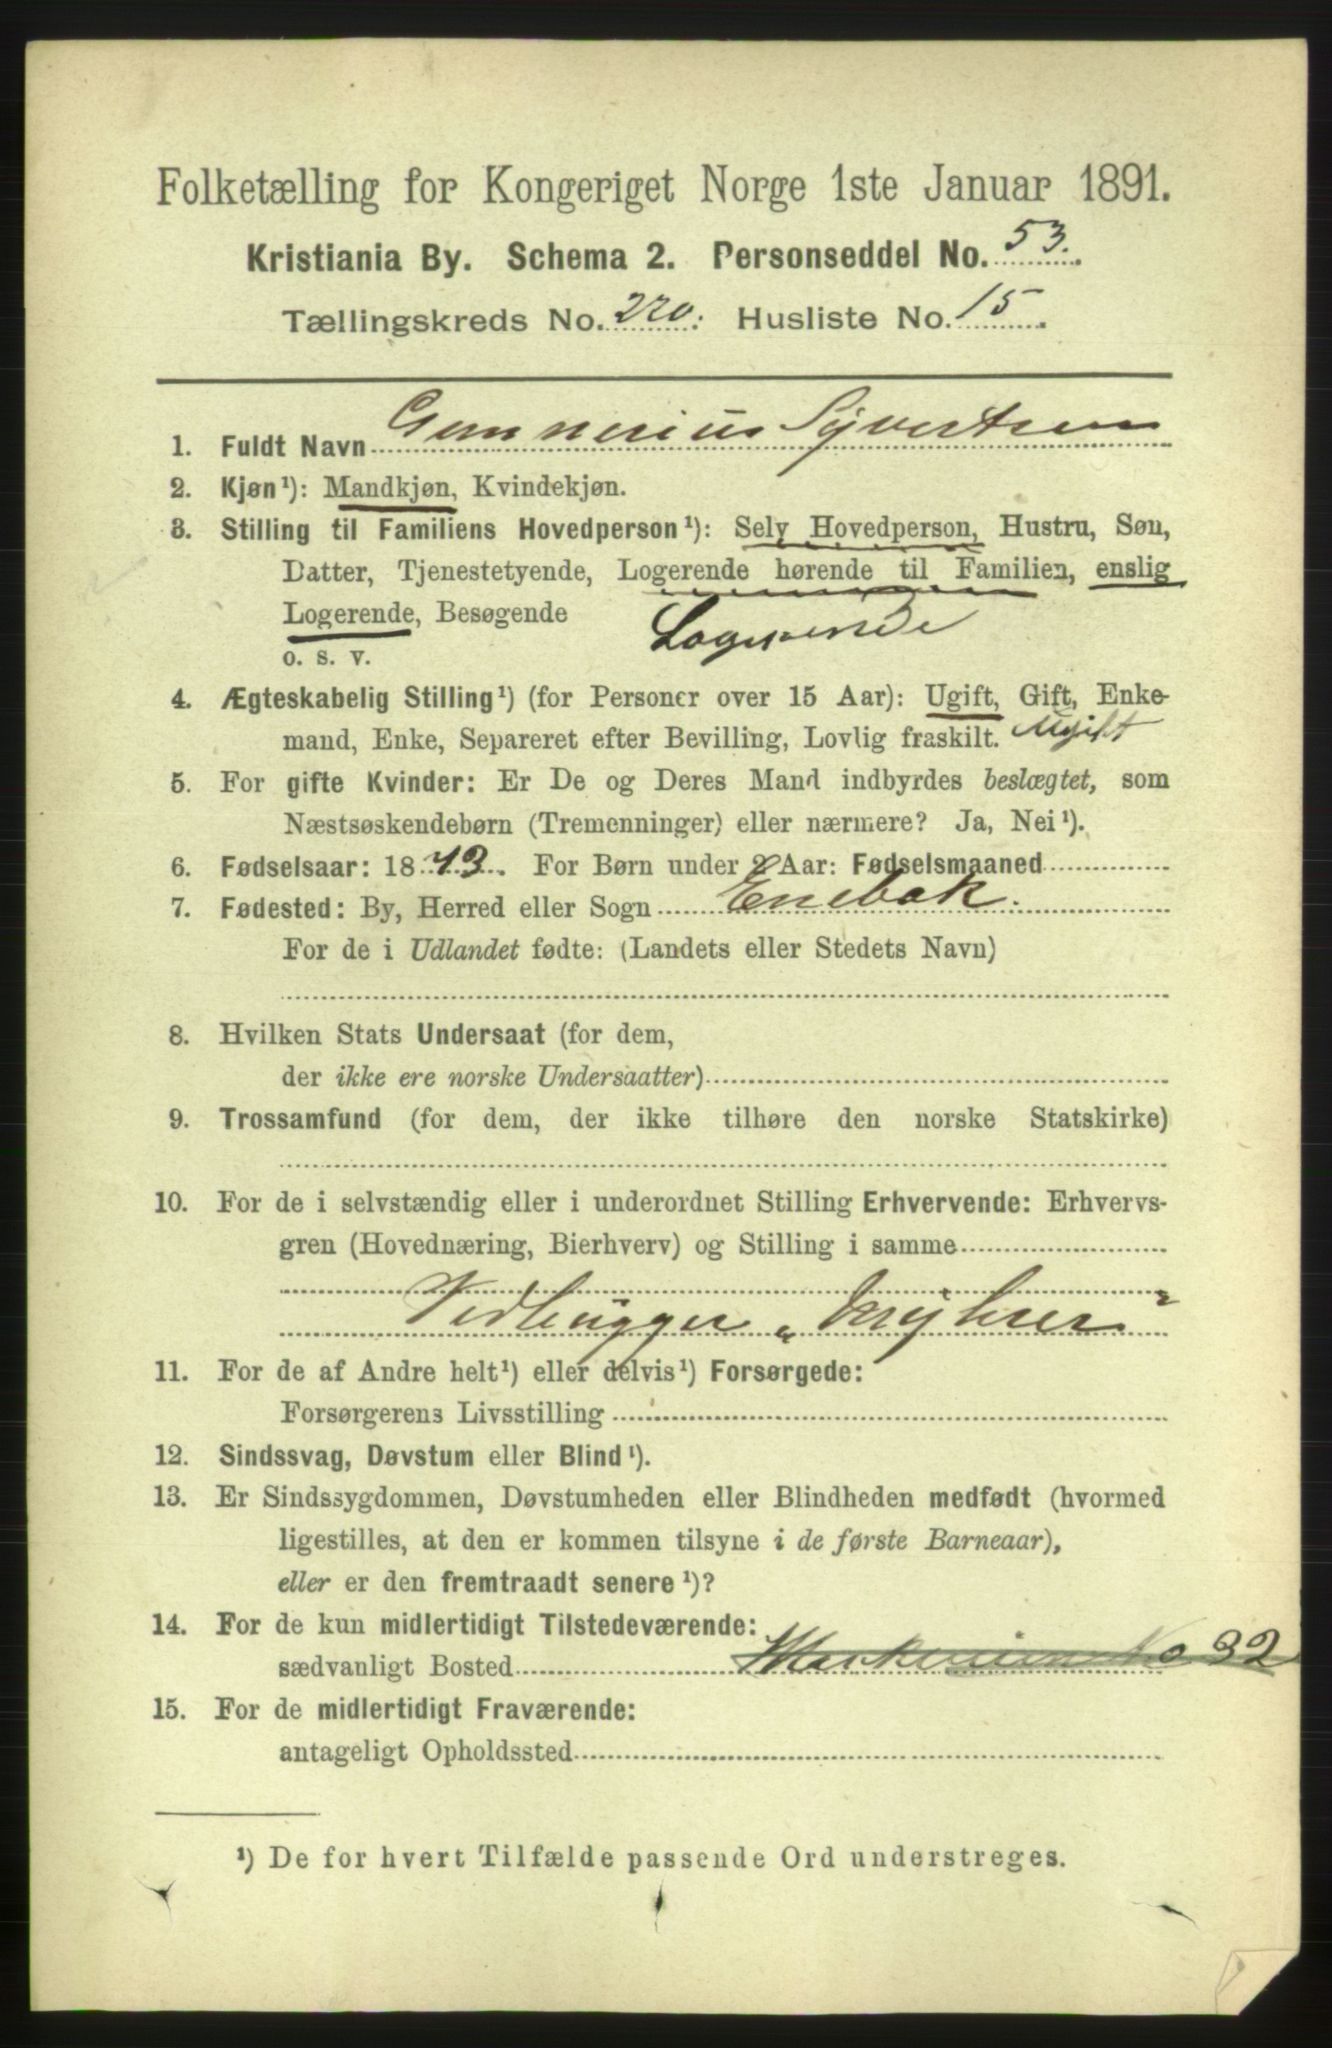 Folketælling for Kongeriget Norge 1ste Januar 1891.
Kristiania By. Schema 2. Personseddel No. 53.
Tællingskreds No. 220. Husliste No. 15.
1. Fuldt Navn Gunnerius Syvertsen
2. Kjøn¹): Mandkjøn, Kvindekjøn.
3. Stilling til Familiens Hovedperson¹): Selv Hovedperson, Hustru, Søn,
Datter, Tjenestetyende, Logerende hørende til Familien, enslig
Logerende, Besøgende Logerende
o. s. v.
4. Ægteskabelig Stilling¹) (for Personer over 15 Aar): Ugift, Gift, Enke-
mand, Enke, Separeret efter Bevilling, Lovlig fraskilt. Ugift
5. For gifte Kvinder: Er De og Deres Mand indbyrdes beslægtet, som
Næstsøskendebørn (Tremenninger) eller nærmere? Ja, Nei¹).
6. Fødselsaar: 1843. For Børn under 2 Aar: Fødselsmaaned
7. Fødested: By, Herred eller Sogn Enebak.
For de i Udlandet fødte: (Landets eller Stedets Navn)
8. Hvilken Stats Undersaat (for dem,
der ikke ere norske Undersaatter)
9. Trossamfund (for dem, der ikke tilhøre den norske Statskirke)
10. For de i selvstændig eller i underordnet Stilling Erhvervende: Erhvervs-
gren (Hovednæring, Bierhverv) og Stilling i samme
Vedhugger
11. For de af Andre helt¹) eller delvis¹) Forsørgede:
Forsørgerens Livsstilling
12. Sindssvag, Døvstum eller Blind¹).
13. Er Sindssygdommen, Døvstumheden eller Blindheden medfødt (hvormed
ligestilles, at den er kommen tilsyne i de første Barneaar),
eller er den fremtraadt senere¹)?
14. For de kun midlertidigt Tilstedeværende:
sædvanligt Bosted No 32
15. For de midlertidigt Fraværende:
antageligt Opholdssted
¹) De for hvert Tilfælde passende Ord understreges.